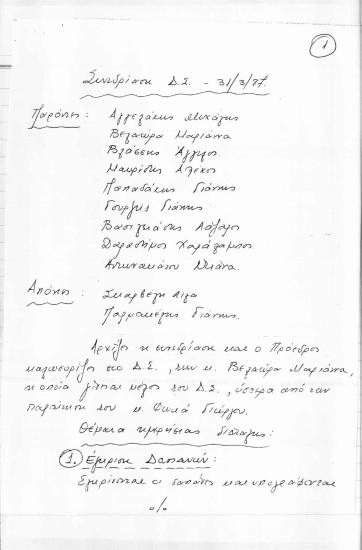 1
Συνεδρίαση Δ.Σ. - 31/3/87.
Παρόντες: Αγγελάκης Μιχάλης
Βελαώρα Μαριάννα
Βλάσσης Άγγελος
Μαυρίδης Αλέκος
Παπαδάκης Γιάννης
Γουργής Γιάννης
Βασιλειάδης Λάζαρος
Χαράλαμπος
Ντιάνα
Απόντες: Σκαρβέλη Λίζα
Γιάννης.
Αρχίζει η συνεδρίαση και ο Πρόεδρος
καλωσορίζει στο Δ.Σ., την κ. Βελαώρα Μαριάννα,
η οποία γίνεται μέλος του Δ.Σ., ύστερα από την
παραίτηση του κ. Φωκά Γιώργου.
Θέματα ημερήσιας διάταξης:
1. Έγκριση Δαπανών:
Εγκρίνονται οι δαπάνες και υπογράφονται
%